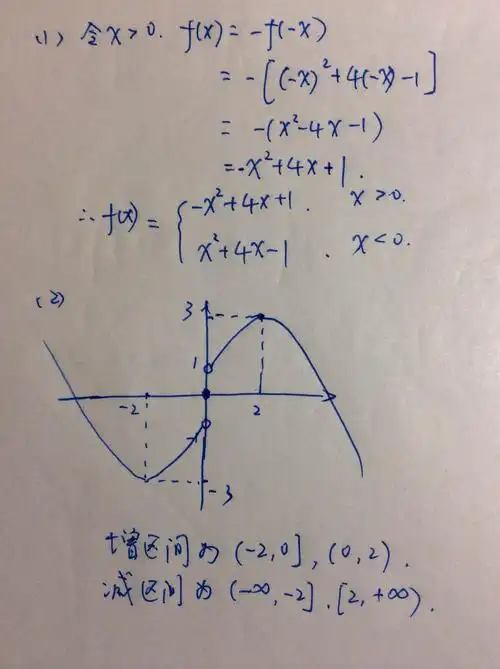 (1) 令x>0. f(x)=-f(-x)
=-[(-x)²+4(-x)-1]
=-(x²-4x-1)
=-x²+4x+1.
∴f(x)={-x²+4x+1. x>0.
x²+4x-1. x<0.
(2)
3
1
-2 2
-1
-3
增区间为(-2,0],(0,2).
减区间为(-∞,-2].[2,+∞).